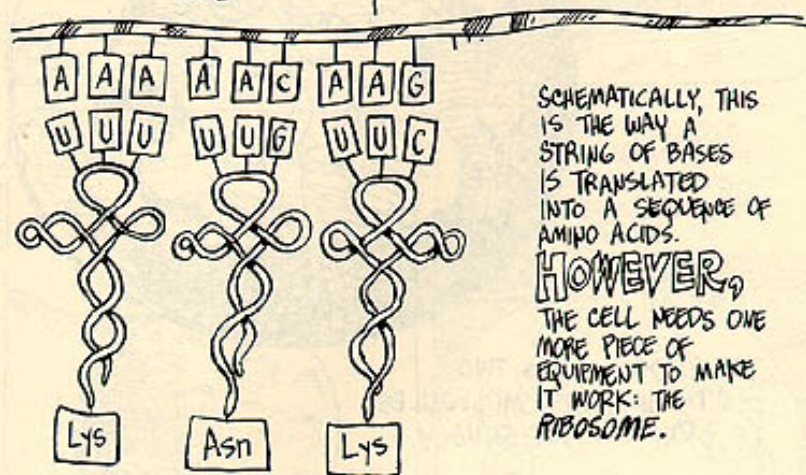 A A A A A C A A G
U U U U U G U U C
Lys Asn Lys
SCHEMATICALLY, THIS
IS THE WAY A
STRING OF BASES
IS TRANSLATED
INTO A SEQUENCE OF
AMINO ACIDS.
HOWEVER,
THE CELL NEEDS ONE
MORE PIECE OF
EQUIPMENT TO MAKE
IT WORK: THE
RIBOSOME.